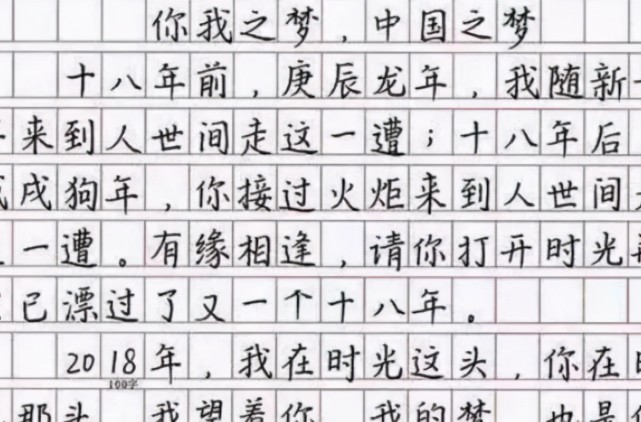 你我之梦，中国之梦
十八年前，庚辰龙年，我随新
来到人世间走这一遭；十八年后
戌狗年，你接过火炬来到人世间
一遭。有缘相逢，请你打开时光
已漂过了又一个十八年。
2018年，我在时光这头，你在
100字
那头